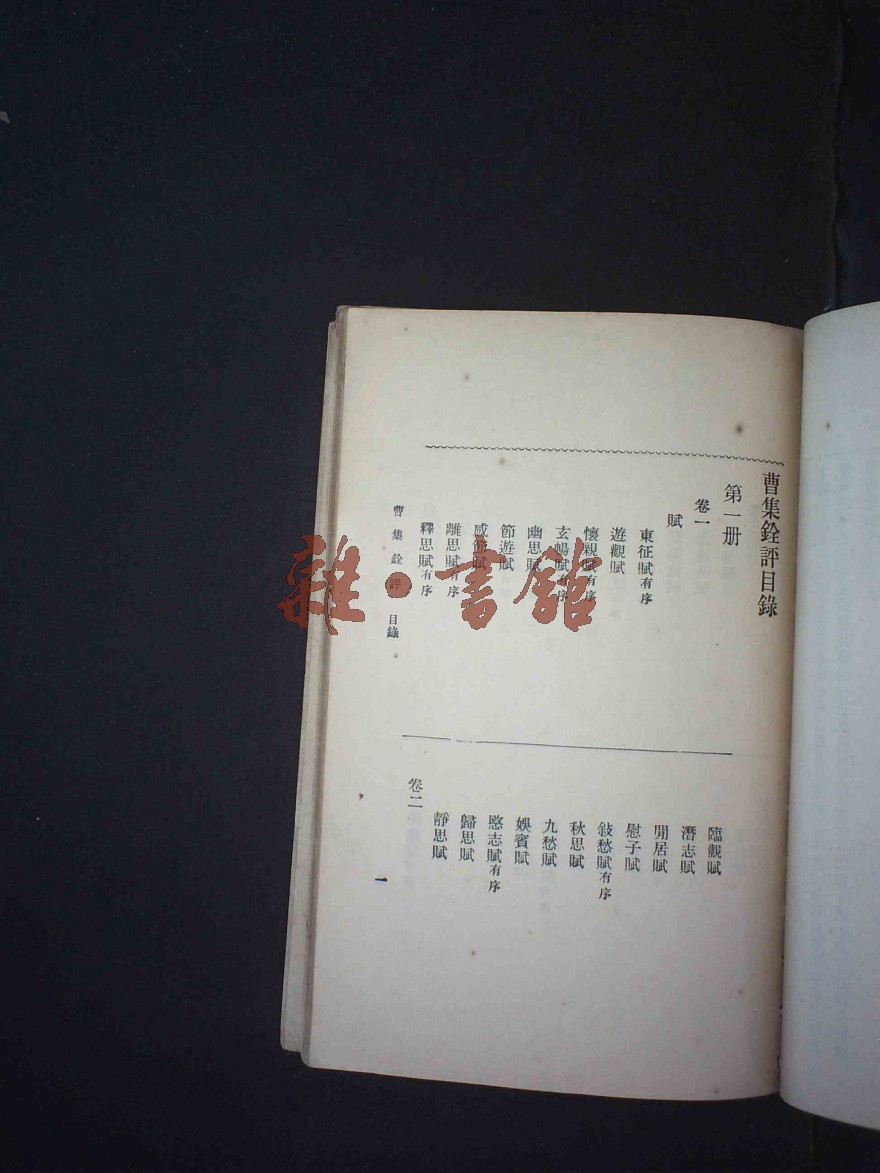 曹集銓評目錄
第一册
卷一
賦
東征賦有序
遊觀賦
懷親賦有序
玄暢賦有序
幽思賦
節遊賦
感節賦
離思賦有序
釋思賦有序
臨觀賦
潛志賦
閒居賦
慰子賦
敍愁賦有序
秋思賦
九愁賦
娛賓賦
愍志賦有序
歸思賦
靜思賦
卷二
曹集銓評 目錄
一
雜·書館